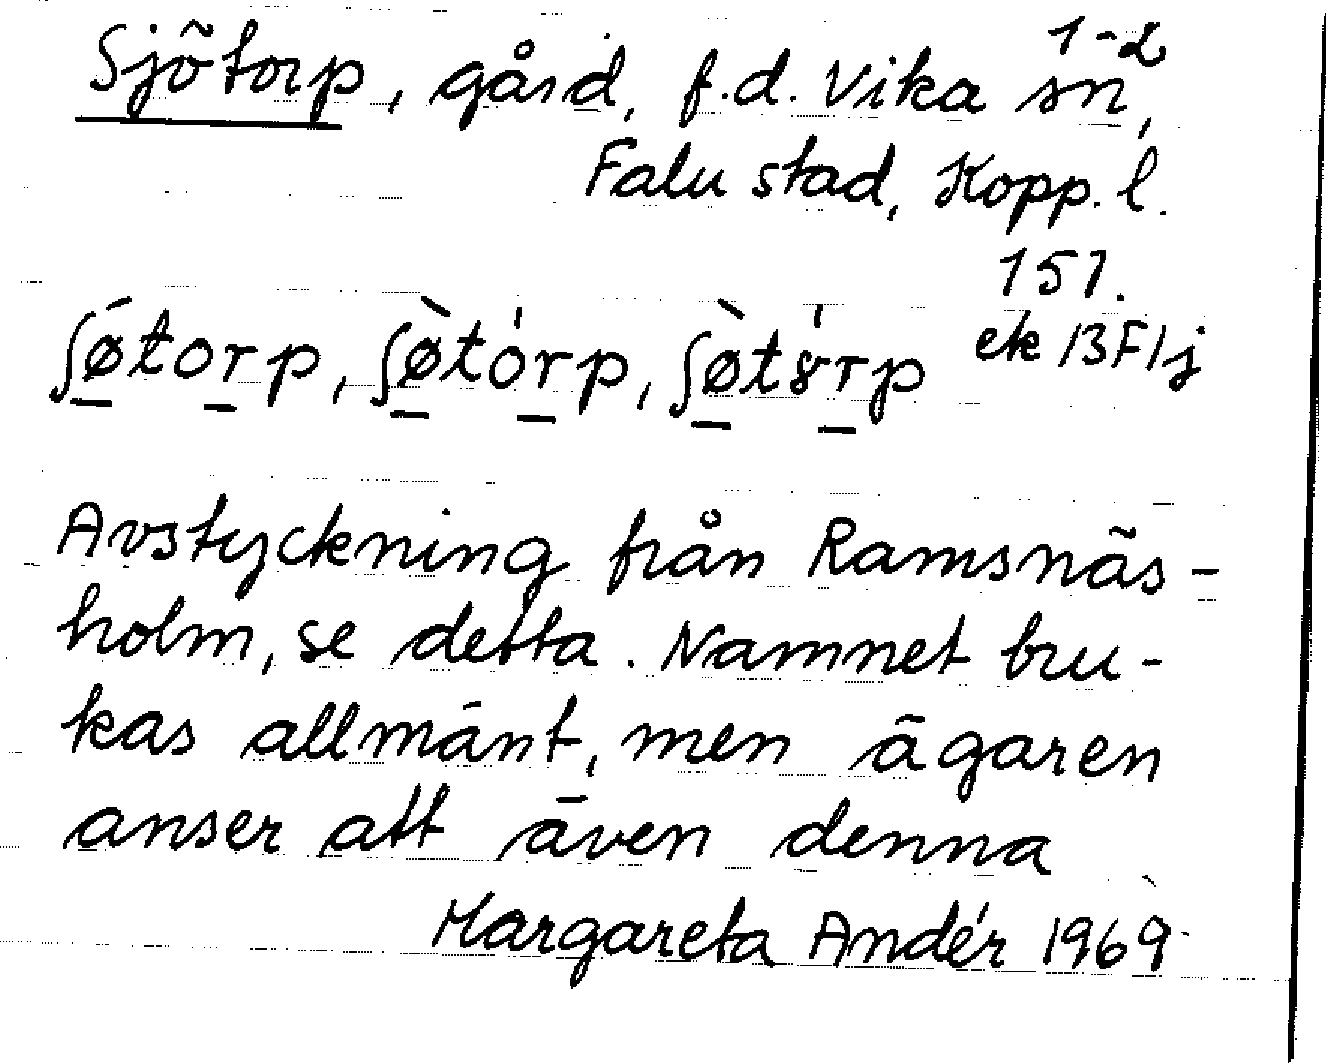 1-2
Sjötorp, gård, f.d. Vika sn,
Falu stad, Kopp. l.
157.
ek 13F1j
ʃǿtorp, ʃø̀tórp, ʃø̀tɤ́rp
Avstyckning från Ramsnäs-
holm, se detta. Namnet bru-
kas allmänt, men ägaren
anser att även denna
Margareta Andér 1969